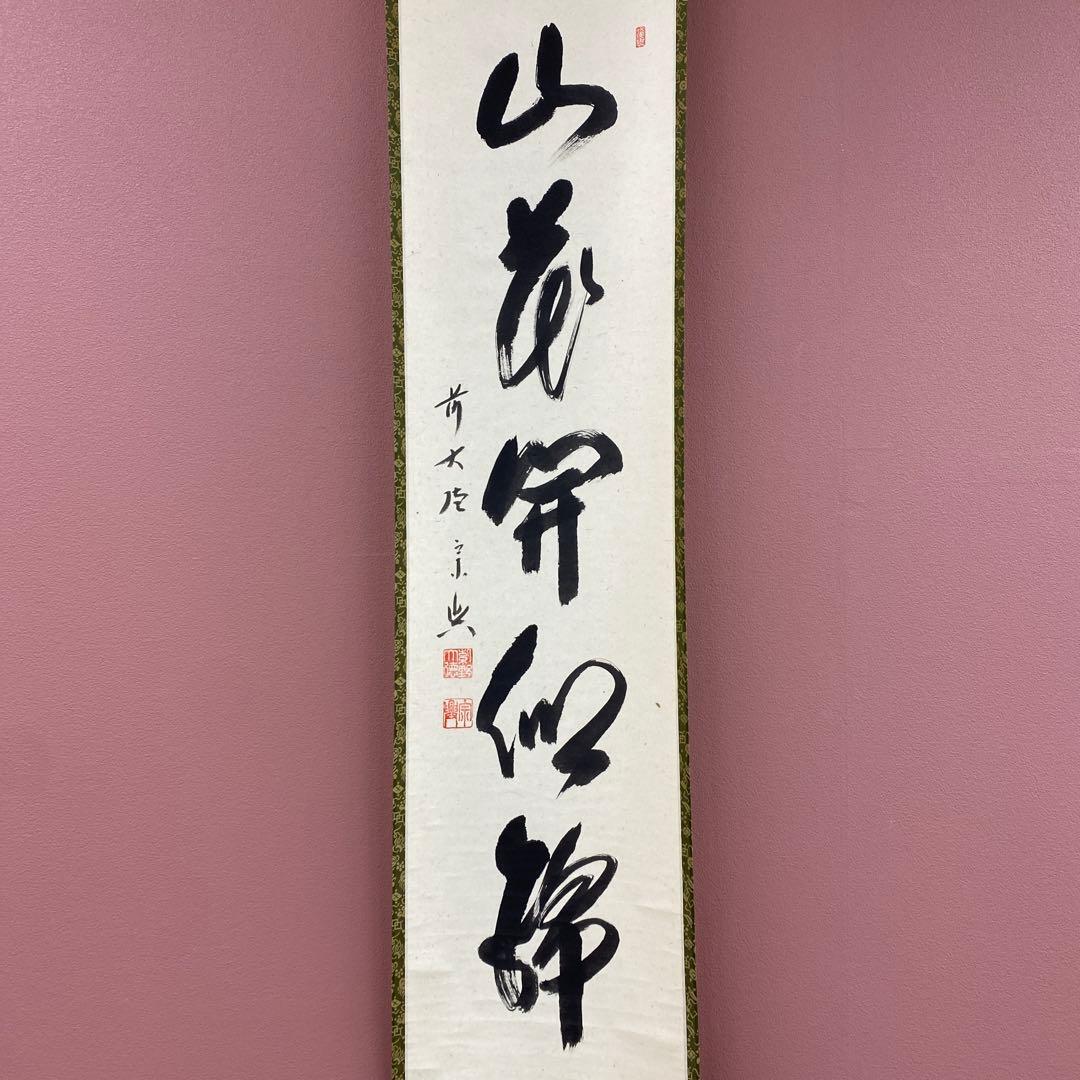 山花開似錦
前大徳 宗興